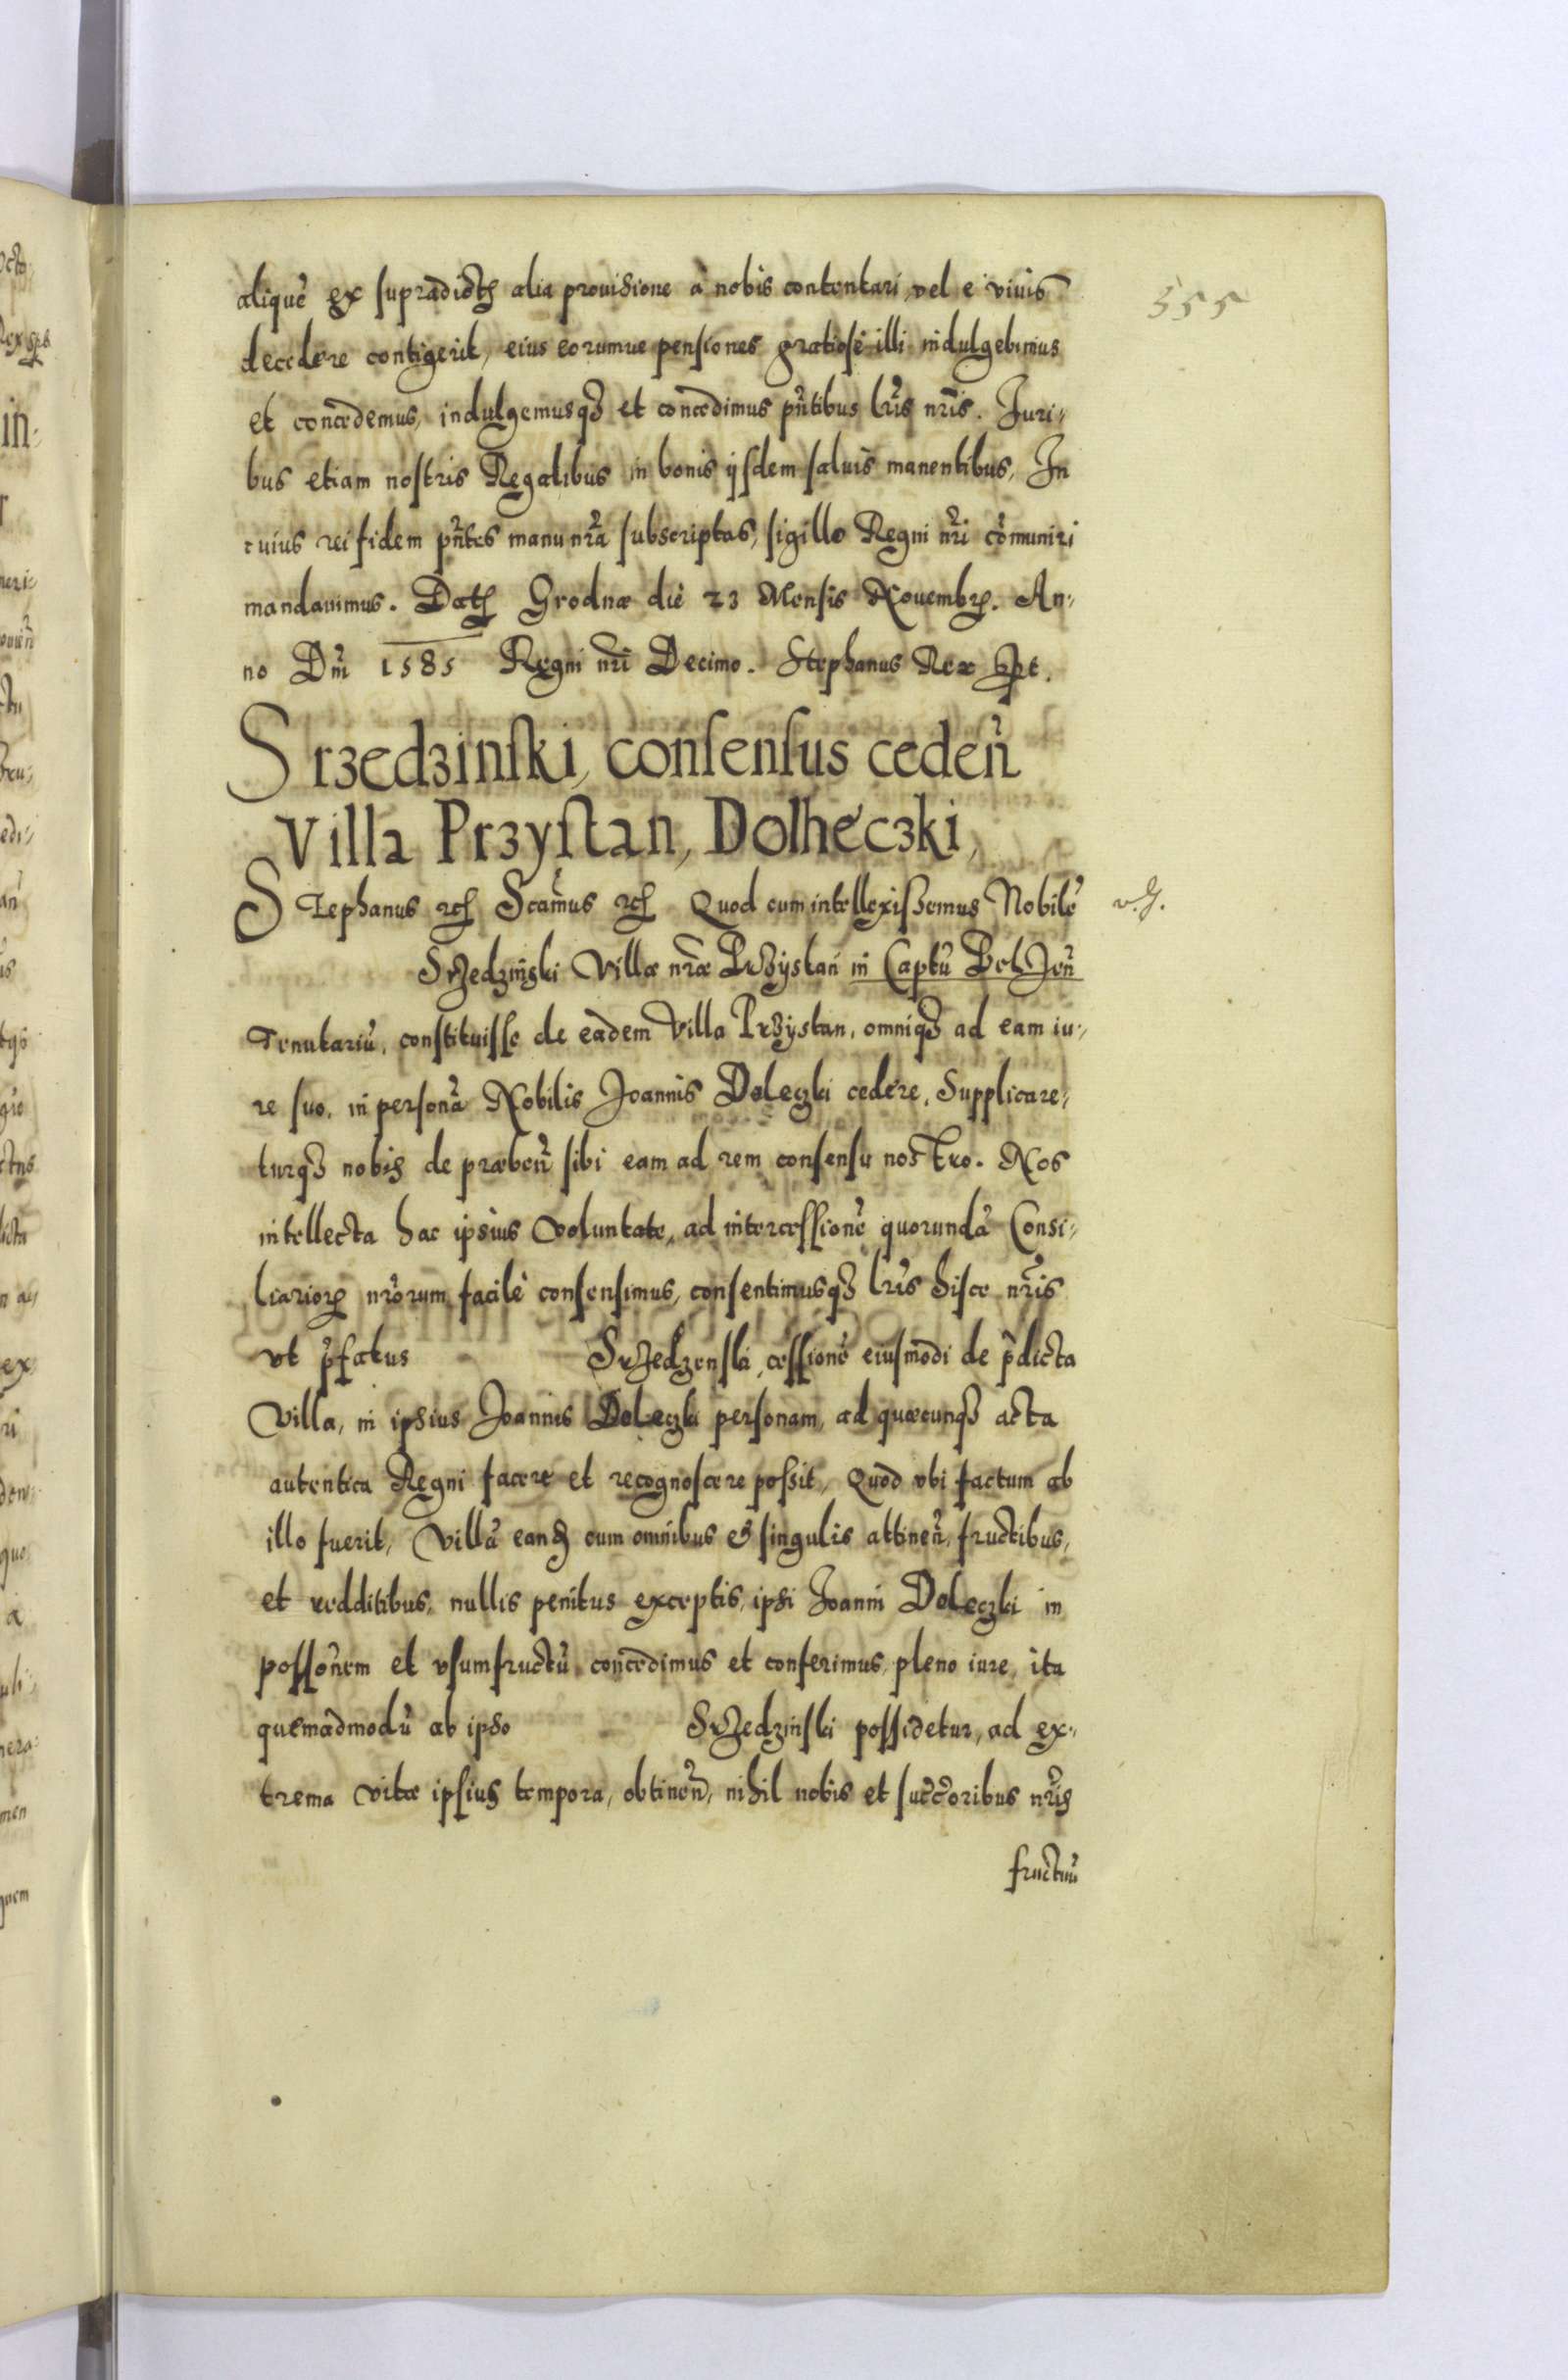 555
aliquē ex supradictꝭ alia prouisione à nobis contentari, vel e viuis
decedere contigerit, eius eorumue pensiones gratiosè illi indulgebimus
et concedemus, indulgemusqꝫ et concedimus pn̄tibus lr̄is nr̄is. Juri⸗
bus etiam nostris Regalibus in bonis ijsdem saluis manentibus, In
cuius rei fidem pn̄tes manu nr̄a subscriptas, sigillo Regni nr̄i cōmuniri
mandauimus. Datꝭ Grodnæ die 23 Mensis Nouembrꝭ. An⸗
no Dn̄i 1585 Regni nr̄i Decimo. Stephanus Rex
Srzedzinski, consensus ceden̄
Villa Przystan, Dolheczki,
STephanus etc Scamus etc Quod cum intellexissemus Nobilē
Srzedzinski Villæ nr̄æ Przystan in Captū Belzen̄
Tenutariū, constituisse de eadem Villa Przystan, omniqꝫ ad eam iu⸗
re suo, in personā Nobilis Joannis Doleczki cedere, Supplicare⸗
turqꝫ nobis de præben̄ sibi eam ad rem consensu nostro. Nos
intellecta hac ipsius voluntate, ad intercessionē quorundā Consi⸗
liariorꝝ nr̄orum facilè consensimus, consentimusqꝫ lr̄is hisce nr̄is
vt p̄fatus Srzedzenski, cessionē eiusmodi de p̄dicta
Villa, in ipsius Joannis Doleczki personam, ad quæcunqꝫ acta
autentica Regni facere et recognoscere possit, Quod vbi factum ab
illo fuerit, Villā eandꝫ cum omnibus & singulis attinen̄, fructibus,
et redditibus, nullis penitus exceptis, ipsi Joanni Doleczki in
possōnem et vsumfructū, concedimus et conferimus, pleno iure, ita
quemadmodū ab ipso Srzedzinski possidetur, ad ex⸗
trema vitæ ipsius tempora, obtinen̄, nihil nobis et succ̄oribus nr̄is
fructuū